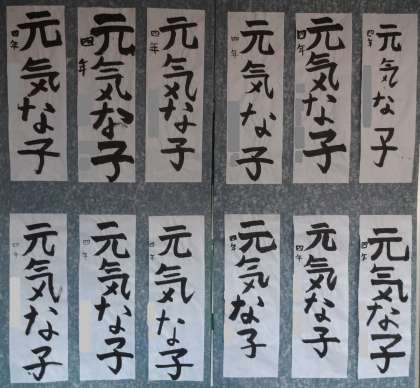 元気な子
四年
元気な子
四年
元気な子
四年
元気な子
四年
元気な子
四年
元気な子
四年
元気な子
四年
元気な子
四年
元気な子
四年
元気な子
四年
元気な子
四年
元気な子
四年